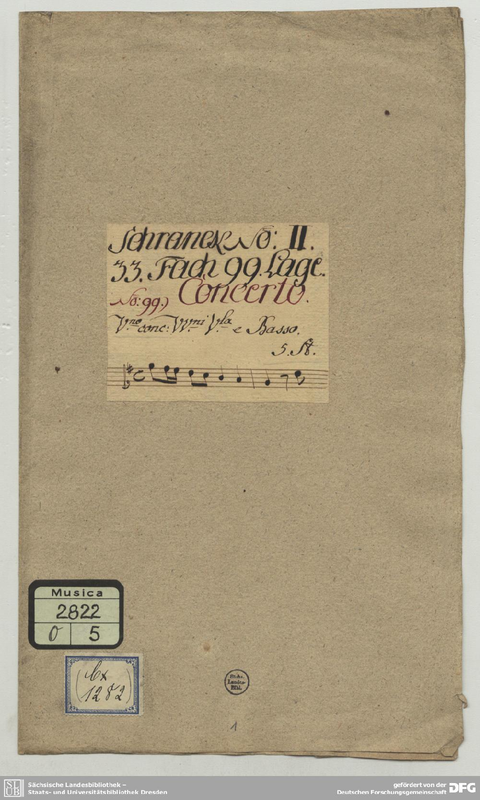 Schranck No: II.
33. Fach 99. Lage.
No: 99.) Concerto.
V.no conc: VV.ni V.la e Basso.
5. St.
Musica
2822
O 5
(Cx
1282)
Sächs.
Landes-
Bibl.
1
SLUB
Sächsische Landesbibliothek –
Staats- und Universitätsbibliothek Dresden
gefördert von der
Deutschen Forschungsgemeinschaft DFG